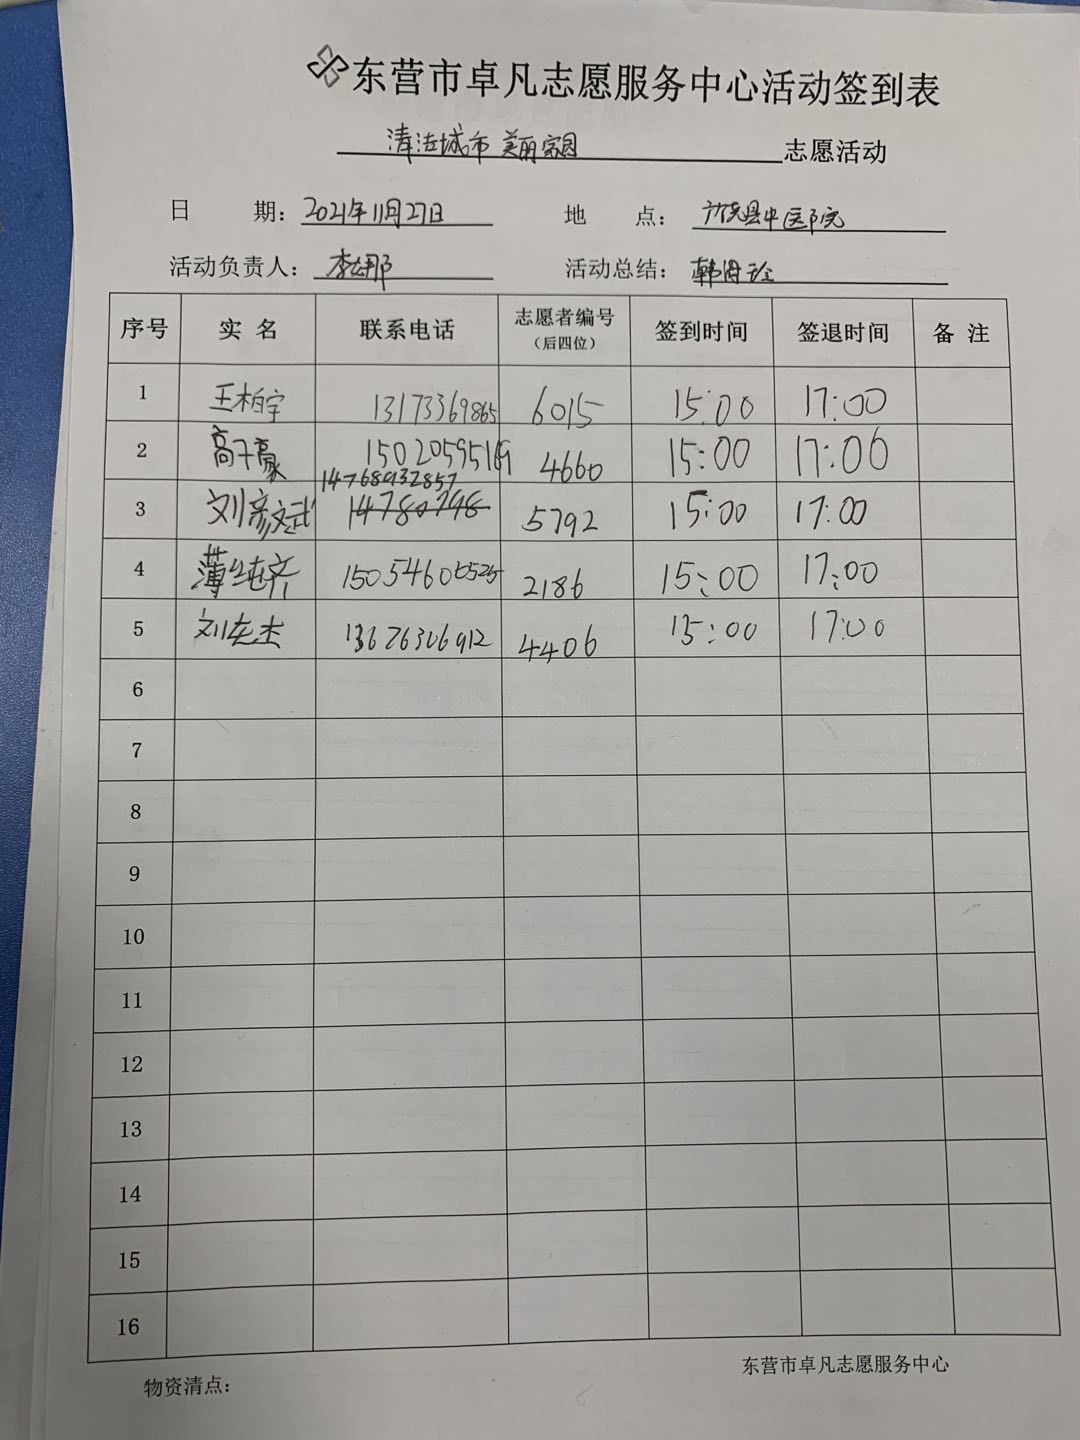 东营市卓凡志愿服务中心活动签到表
清洁城市 美丽家园 志愿活动
日 期：2021年11月27日 地 点：利津县中医院
活动负责人：李娜 活动总结：
序号 实 名 联系电话 志愿者编号（后四位） 签到时间 签退时间 备 注
1 王柏宇 13173369865 6015 15:00 17:00
2 高子豪 15020595169 4660 15:00 17:00
14768932857
3 刘彦斌 14780798 5792 15:00 17:00
4 薄纯齐 2186 15:00 17:00
5 刘东杰 13626306912 4406 15:00 17:00
6
7
8
9
10
11
12
13
14
15
16
东营市卓凡志愿服务中心
物资清点：